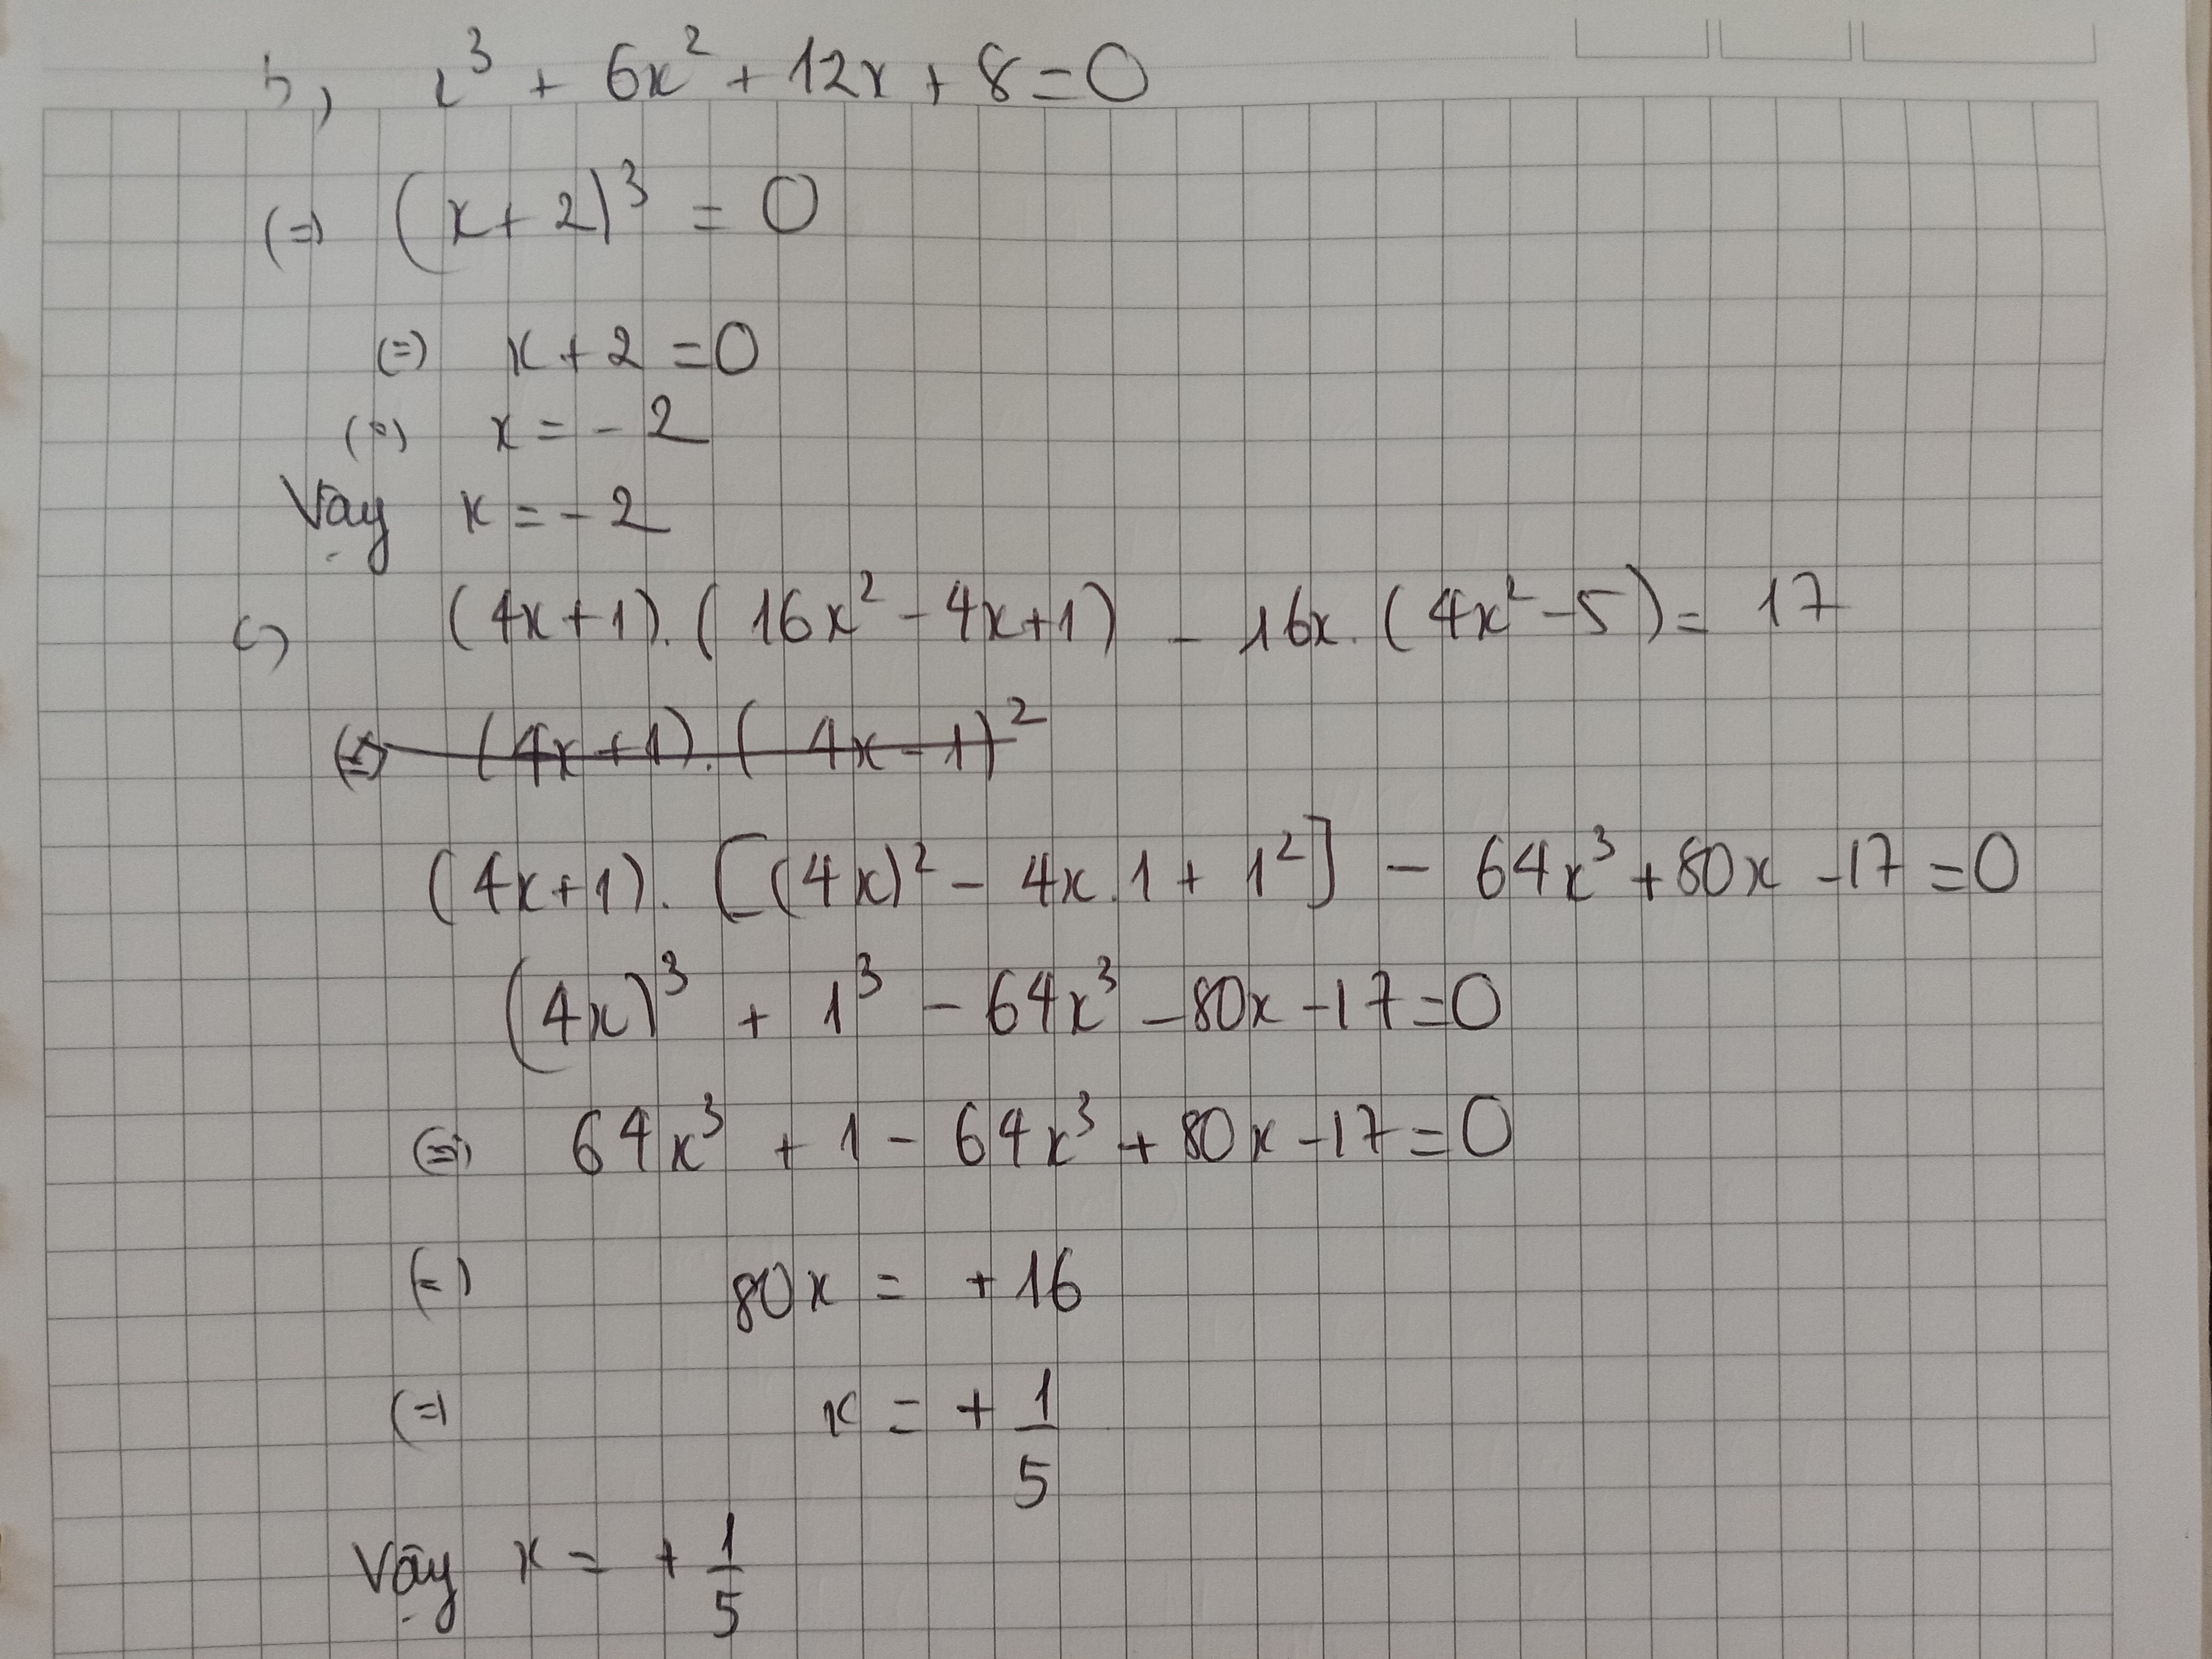 b, x³ + 6x² + 12x + 8 = 0
(=) (x + 2)³ = 0
(=) x + 2 = 0
(=) x = - 2
Vậy x = - 2
c) (4x + 1).(16x² - 4x + 1) - 16x.(4x² - 5) = 17
(=) (4x + 1).(4x - 1)²
(4x + 1).[(4x)² - 4x.1 + 1²] - 64x³ + 80x - 17 = 0
(4x)³ + 1³ - 64x³ - 80x - 17 = 0
(=) 64x³ + 1 - 64x³ + 80x - 17 = 0
(=) 80x = + 16
(=) x = + 1/5
Vậy x = + 1/5